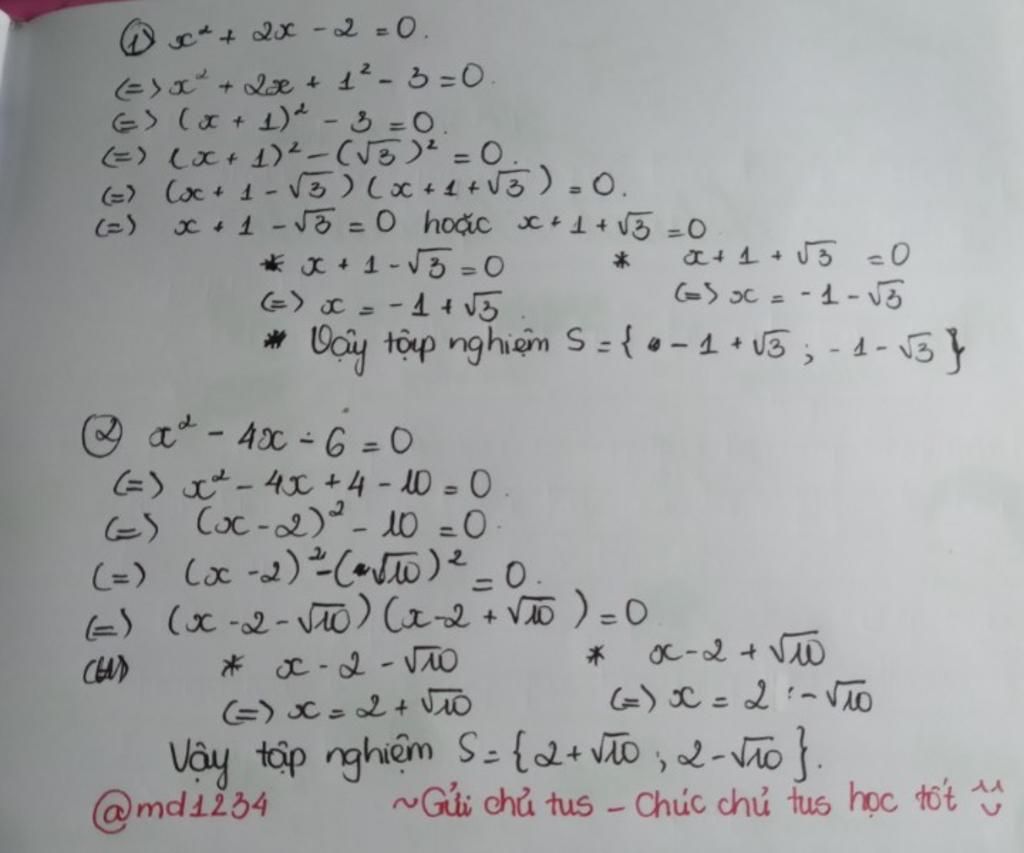 ① x² + 2x - 2 = 0.
(=) x² + 2x + 1² - 3 = 0.
(=) (x + 1)² - 3 = 0.
(=) (x + 1)² - (√3)² = 0.
(=) (x + 1 - √3)(x + 1 + √3) = 0.
(=) x + 1 - √3 = 0 hoặc x + 1 + √3 = 0
* x + 1 - √3 = 0 * x + 1 + √3 = 0
(=) x = -1 + √3. (=) x = -1 - √3
* Vậy tập nghiệm S = { -1 + √3 ; -1 - √3 }
② x² - 4x - 6 = 0
(=) x² - 4x + 4 - 10 = 0.
(=) (x - 2)² - 10 = 0.
(=) (x - 2)² - (√10)² = 0.
(=) (x - 2 - √10)(x - 2 + √10) = 0
* x - 2 - √10 * x - 2 + √10
(=) x = 2 + √10 (=) x = 2 - √10
Vậy tập nghiệm S = {2 + √10 ; 2 - √10}.
@md1234 ~Gửi chủ tus - Chúc chủ tus học tốt ^^